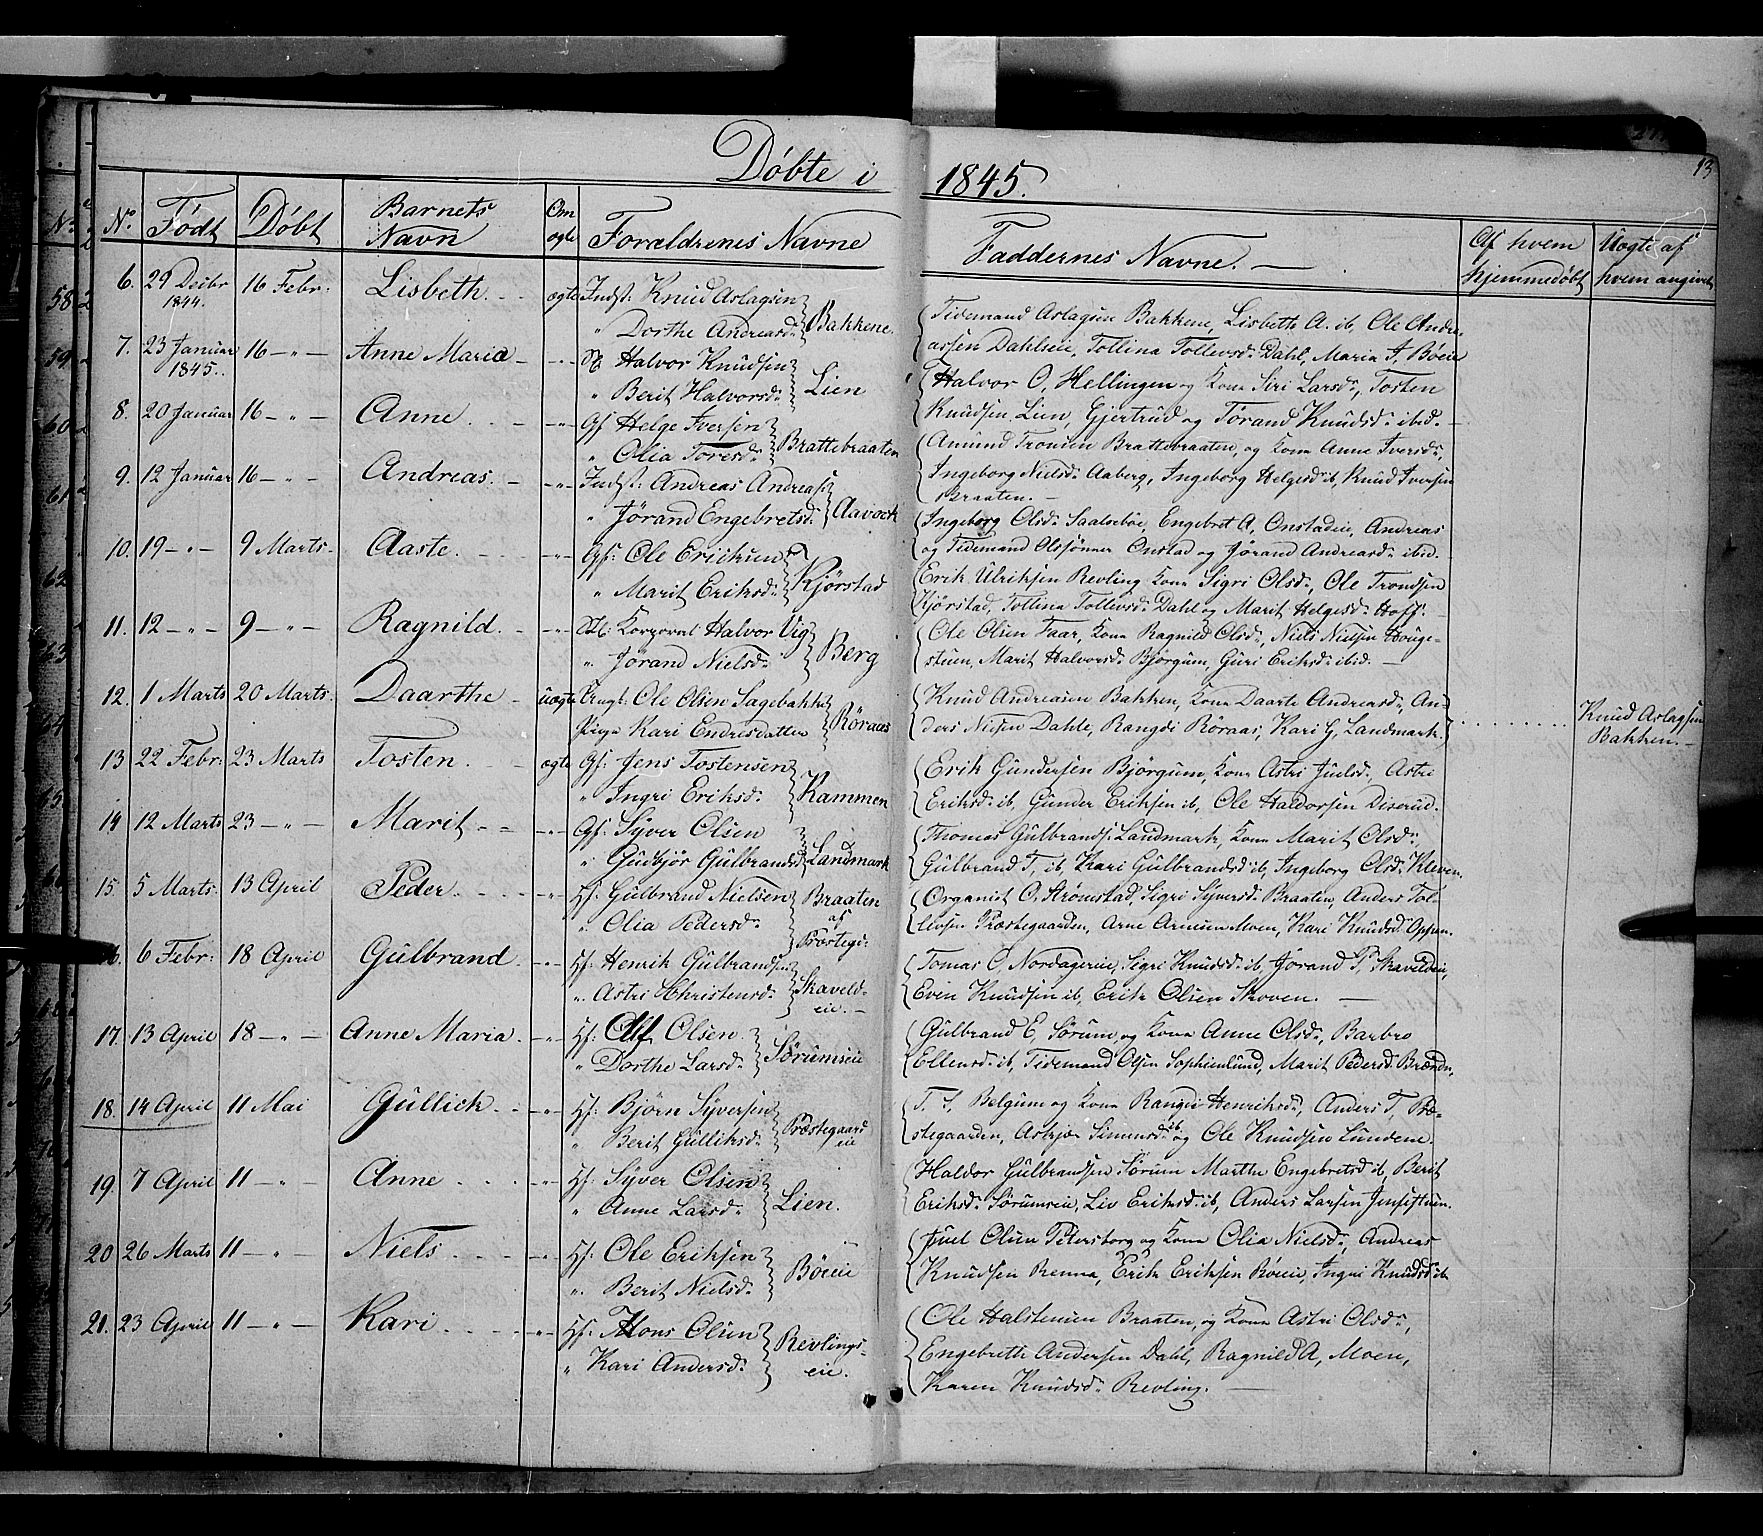 Döbte i 1845.
13
No Födt Döbt Barnets Navn Om ægte Forældrenes Navne Faddernes Navne. Af hvem hjemmedöbt Uægte af hvem angivet
6. 29 Decbr 1844. 16 Febr. Lisbeth. ægte Indst: Knud Aslagsen
" Dorthe Andreasd. Bakkene.
Tidemand Aslagsen Bakkene, Lisbeth A. ib, Ole Andre-
assen Dahlseie, Tollina Tollevsd. Dahl, Maria J. Böeie
7. 23 Januar 1845. 16 - " - Anne Maria - " - Halvor Knudsen
" Berit Halvorsd. Lien
Halvor O, Hellingen og Kone Siri Larsd., Tosten
Knudsen Lien, Gjertrud og Törand Knudsd. ibid.
8. 20 Januar 16 - " - Anne - " - Gf Helge Iversen
" Olia Toresd. Brattebraaten
Amund Tronsen Brattebraaten, og Kone Anne Iversd.,
Ingeborg Nielsd. Aaberg, Ingeborg Helgesd ib, Knud Iversen
Braaten.
9. 12 Januar 16 - " - Andreas. - " - Indst: Andreas Andreas
" Jörand Engebretsd. Aavock
Ingeborg Olsd. Saalseböe, Engebret A, Onstadeie, Andreas
og Tidemand Olssönner Onstad og Jörand Andreasd. ibid.
10. 19 - " - 9 Marts. Aaste. - " - Gf: Ole Ericksen
" Marit Eriksd. Kjörstad
Erik Ulriksen Revling Kone Sigri Olsd., Ole Trondsen
Kjörstad, Tollina Tollevsd. Dahl og Marit Helgesd. Hoff.
11. 12 - " - 9 - " - Ragnild. - " - Korporal Halvor Vig
" Jörand Nielsd. Berg
Ole Olsen Faar, Kone Ragnild Olsd., Niels Nielsen Houge-
stuen, Marit Halvorsd. Björgum, Guri Eriksd. ibid.
12. 1 Marts 20 Marts. Daarthe uægte Ungk: Ole Olsen Sagebakk
Pige Kari Endresdatter Röraas
Knud Andreasen Bakken, Kone Daarte Andreasd., An-
ders Nilsen Dahle, Rangdi Röraas, Kari G, Landmark.
Knud Aslagsen
Bakken.
13 22 Febr: 23 Marts Tosten. ægte Gf: Jens Tostensen
" Ingri Eriksd. Kammen
Erik Gundersen Björgum, Kone Astri Juelsd., Astri
Eriksd. ib, Gunder Eriksen ib, Ole Haldorsen Diserud.
14 12 Marts 23 - " - Marit - " - Gf: Syver Olsen
" Gudbjör Gulbrandsd Landmark
Thomas Gulbrands. Landmark, Kone Marit Olsd.,
Gulbrand T, ib, Kari Gulbrandsd ib, Ingeborg Olsd. Kleven,
15. 5 Marts. 13 April Peder - " - Hf: Gulbrand Nielsen
" Olia Pedersd. Braaten af Præsteg:
Organist O, Strömstad, Sigri Syversd. Braaten, Anders Tol-
levsen Præstegaarden, Arne Arnesen Moen, Kari Knudsd. Oppen.
16. 6 Febr: 18 April Gulbrand - " - Hf: Henrik Gulbrandsen
" Astri Christensd. Skaveld-
eie.
Tomas O, Nordagereie, Sigri Knudsd. ib, Jörand P, Skaveldeie,
Even Knudsen ib, Erik Olsen Skoven.
17. 13 April 18 - " - Anne Maria - " - Hf: Olf Olsen
" Dorthe Larsd. Sörumseie
Gulbrand E, Sörum, og Kone Anne Olsd., Barbro
Ellensd. ib, Tidemand Olsen Sophienlund, Marit Pedersd. Brænden,
18. 14 April 11 Mai Gullick - " - Hf: Björn Syversen
" Berit Gulliksd. Præstegaard
eie
T. S, Belgum og Kone Rangdi Henriksd., Anders T, Præ-
stegaarden, Astrjör Simensd. ib og Ole Knudsen Lundene.
19. 7 April 11 - " - Anne - " - Hf: Syver Olsen
" Anne Larsd. Lien.
Haldor Gulbrandsen Sörum Marthe Engebretsd ib, Berit
Eriksd. Sörumseie, Liv Eriksd. ib, Anders Larsen Jensstuen.
20 26 Marts 11 - " - Niels - " - Hf: Ole Eriksen
" Berit Nielsd. Böeie
Juel Olsen Petersborg og Kone Olia Nielsd., Andreas
Knudsen Renna, Erik Eriksen Böeie, Ingri Knudsd ib
21. 23 April 11 - " - Kari - " - Hf: Mons Olsen
" Kari Andersd. Revlings-
eie.
Ole Halstensen Braaten, og Kone Astri Olsd.,
Engebreth Andersen Dahl, Ragnild A, Moen,
Karen Knudsd. Revling.